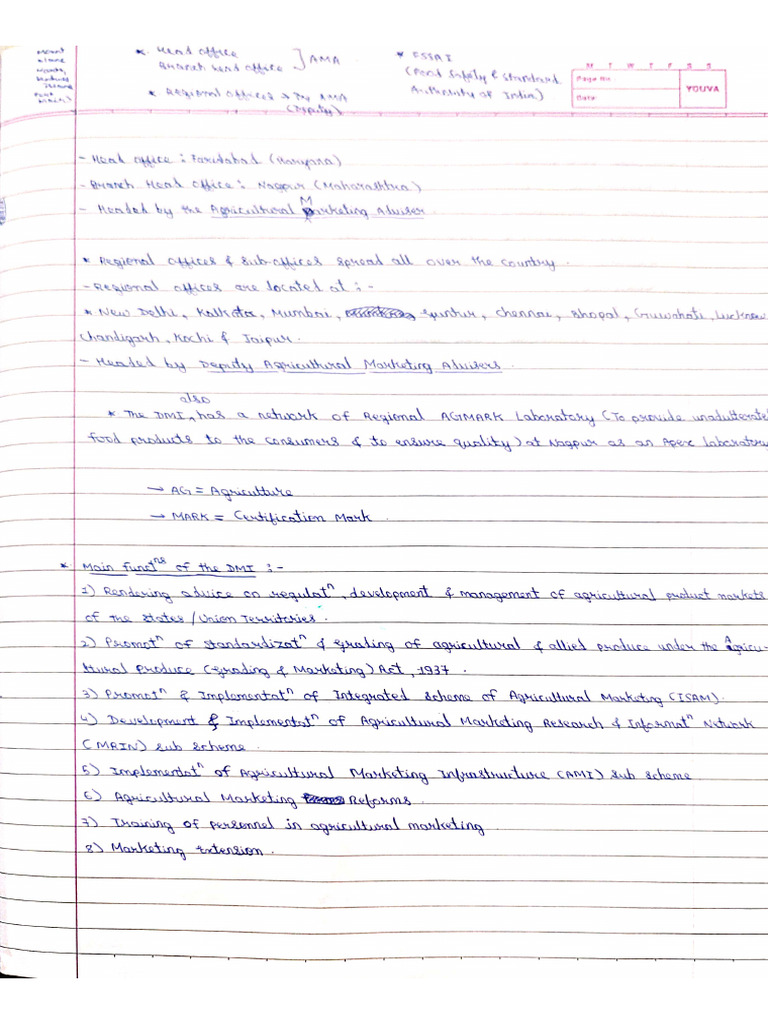 * Head office
Branch head office ] AMA
* Regional offices → Dy AMA
(Deputy)
* FSSAI
(Food Safety & Standard
Authority of India)
M T W T F S S
Page No.:
Date:
YOUVA
- Head office : Faridabad (Haryana)
- Branch Head Office : Nagpur (Maharashtra)
- Headed by the Agricultural Marketing Adviser
* Regional offices & sub-offices spread all over the country.
- Regional offices are located at :-
* New Delhi, Kolkata, Mumbai, Guntur, Chennai, Bhopal, Guwahati, Lucknow
Chandigarh, Kochi & Jaipur.
- Headed by Deputy Agricultural Marketing Advisers.
also
* The DMI, has a network of Regional AGMARK Laboratory (To provide unadulterated
food products to the consumers & to ensure quality) at Nagpur as an Apex laboratory
→ AG = Agriculture
→ MARK = Certification Mark.
* Main functns of the DMI :-
1) Rendering advice on regulatn, development & management of agricultural product markets
of the States / Union Territories.
2) Promotn of standardizatn & grading of agricultural & allied produce under the Agricu-
ltural Produce (Grading & Marketing) Act, 1937.
3) Promotn & Implementatn of Integrated Scheme of Agricultural Marketing (ISAM).
4) Development & Implementatn of Agricultural Marketing Research & Informatn Network
(MRIN) sub scheme.
5) Implementatn of Agricultural Marketing Infrastructure (AMI) sub scheme.
6) Agricultural Marketing Reforms.
7) Training of personnel in agricultural marketing.
8) Marketing Extension.